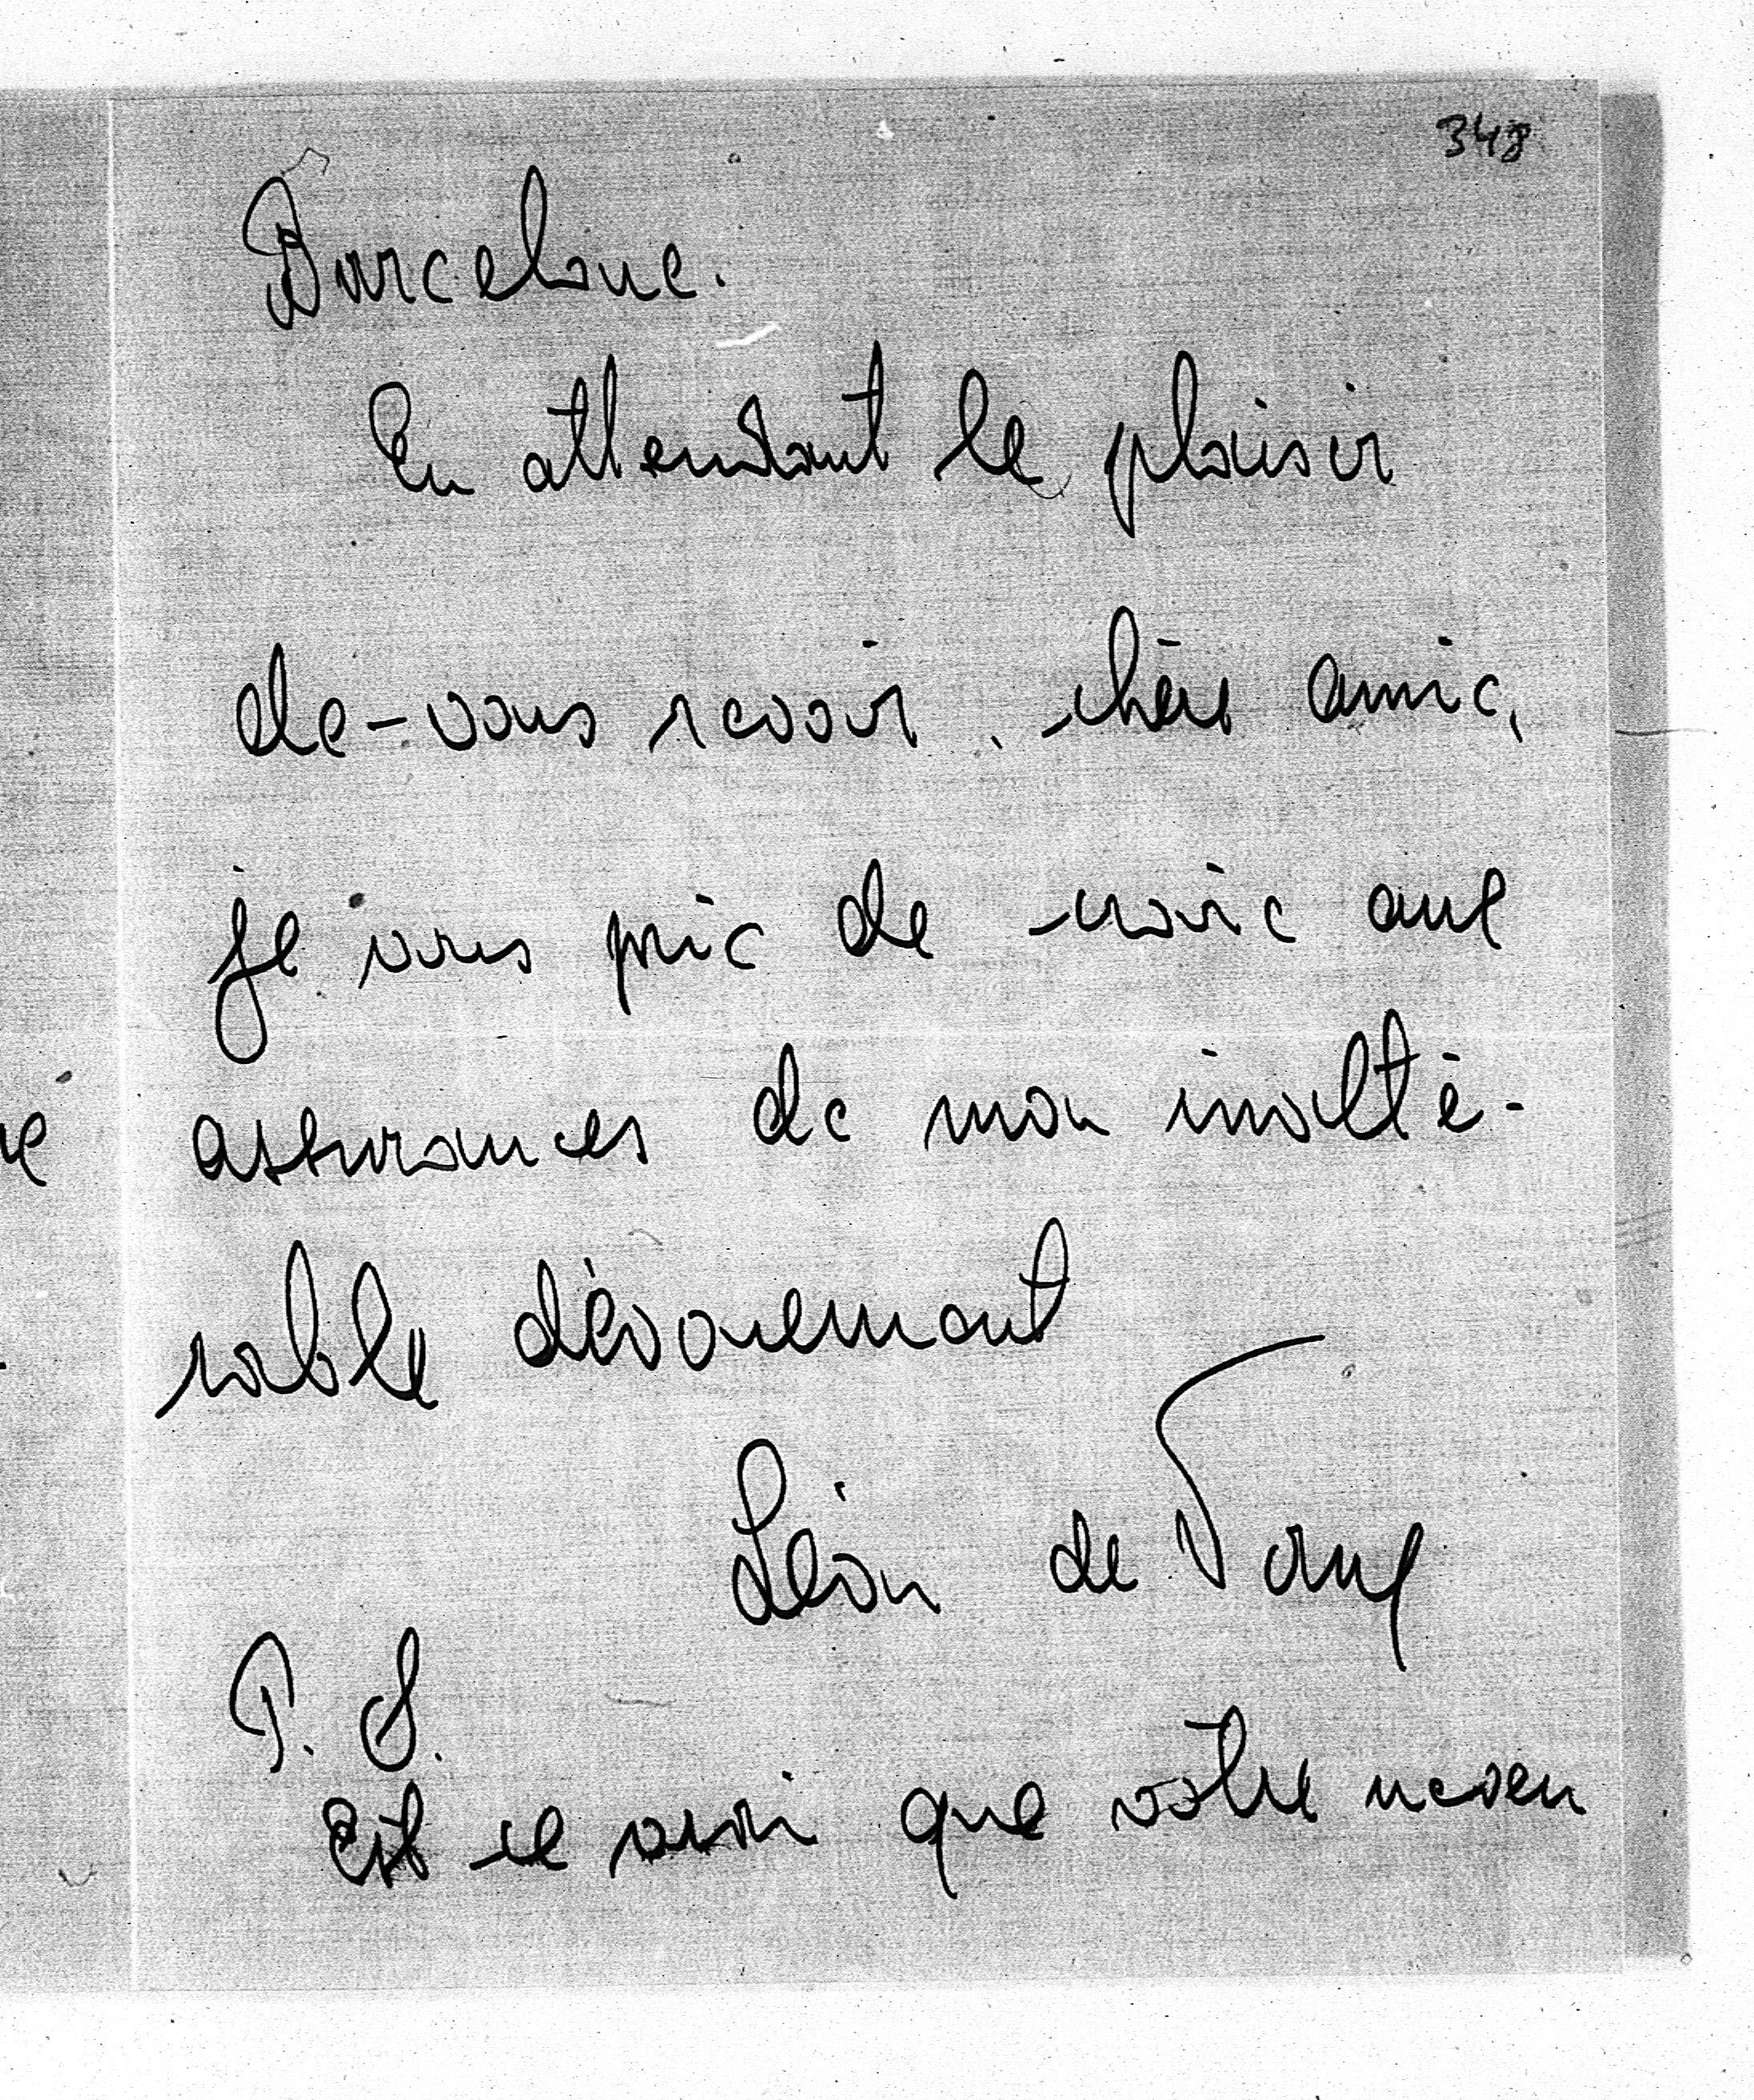 348
Barcelone.
En attendant le plaisir
de-vous revoir, chère amie,
je vous prie de croire aux
assurances de mon inalté-
rable dévouement
Léon de
P. S.
Est ce vrai que votre neveu